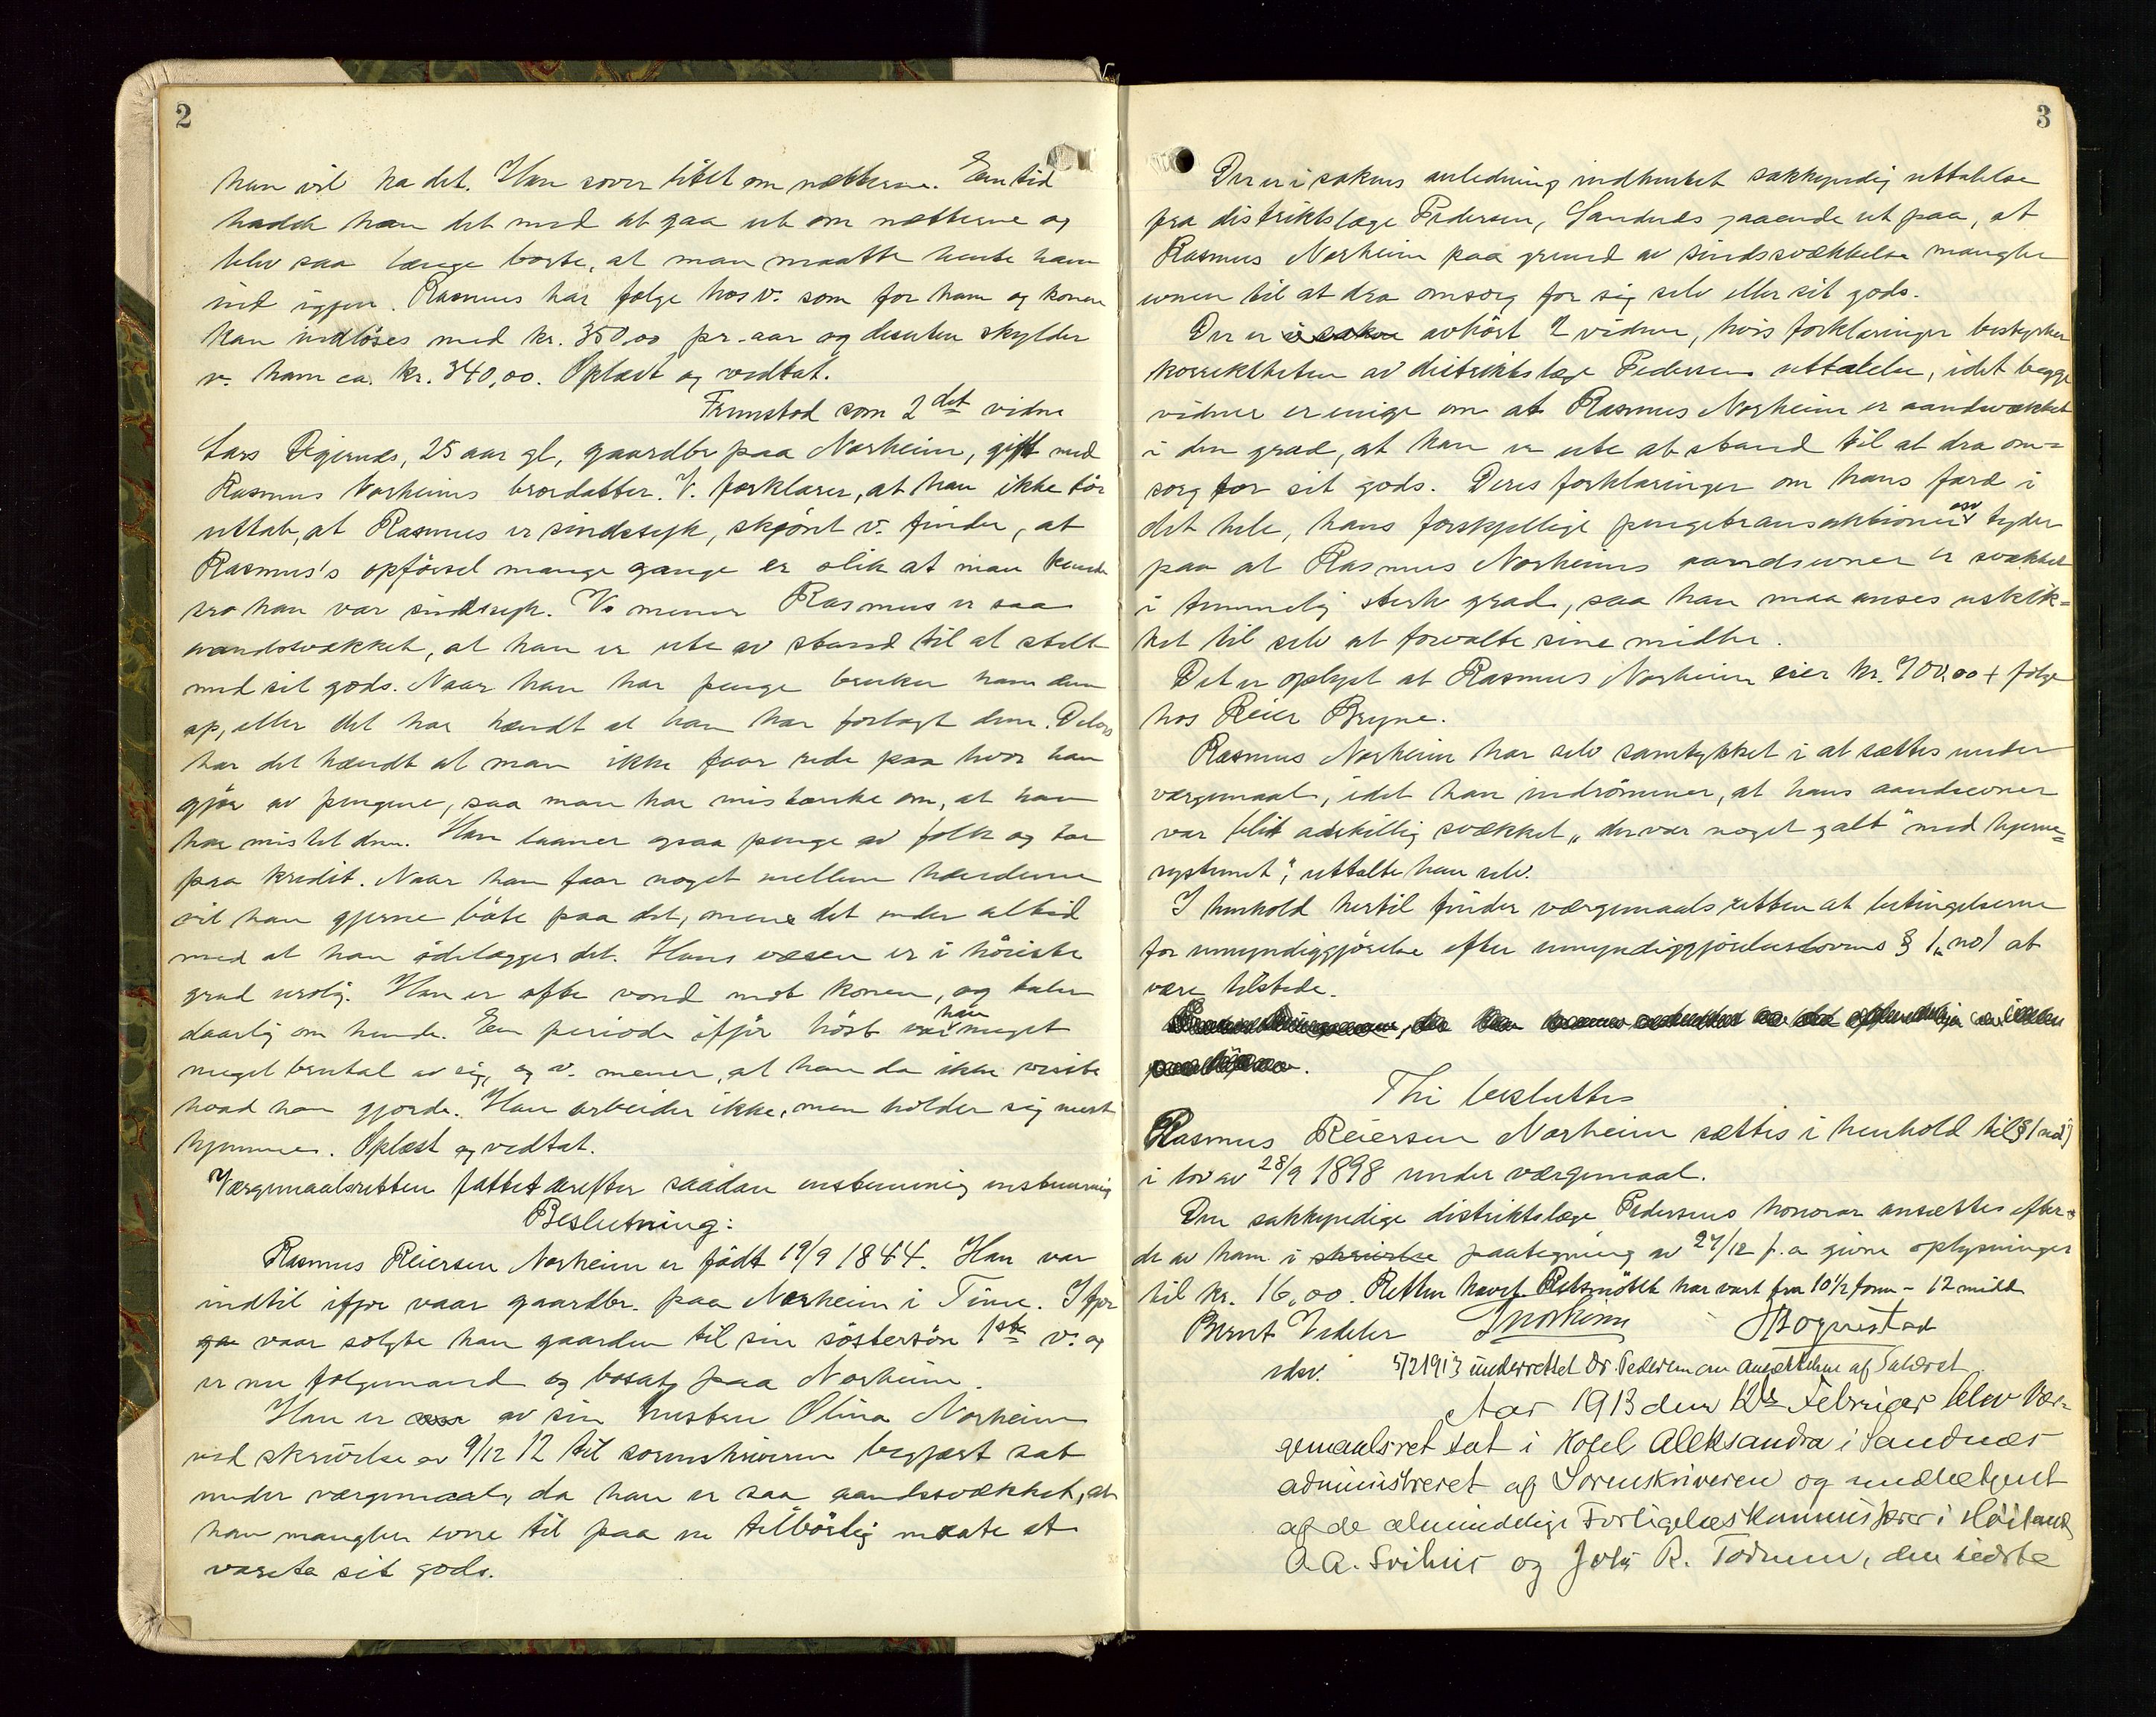 2
han vil ha det. Han sover litet om nætterne. En tid
hadde han det med at gaa ut om nætterne og
blev saa længe borte, at man maatte hente ham
ind igjen. Rasmus har følge hos v. som for ham og konen
kan indløses med kr. 350,00 pr. aar og desuten skylder
v. ham ca. kr. 340,00. Oplæst og vedtat.
Fremstod som 2det vidne
Lars Tjernes, 25 aar gl, gaardbr paa Norheim, gift med
Rasmus Norheims brordatter. V. forklarer, at han ikke tör
uttale, at Rasmus er sindssyk, skjönt v. finder, at
Rasmus's opförsel mange gange er slik at man kunde
tro han var sindssyk. V. mener Rasmus er saa
aandssvækket, at han er ute av stand til at stelle
med sit gods. Naar han har penge bruker han dem
op, eller det har hændt at han har forlagt dem. Delvis
har det hændt at man ikke faar rede paa hvor han
gjör av pengene, saa man har mistanke om, at han
har mistet dem. Han laaner ogsaa penge av folk og tar
paa kredit. Naar han faar noget mellem hænderne
vil han gjerne böte paa det, mens det ender altid
med at han ödelægger det. Hans væsen er i höieste
grad urolig. Han er ofte vond mot konen, og taler
daarlig om hende. En periode ifjor höst var han meget
meget brutal av sig, og v. mener, at han da ikke visste
hvad han gjorde. Han arbeider ikke, men holder sig mest
hjemme. Oplæst og vedtat.
Værgemaalsretten fattet derefter saadan enstemmig enstemmig
Beslutning:
Rasmus Reiersen Norheim er födt 19/9 1844. Han var
indtil ifjor vaar gaardbr. paa Norheim i Time. Ifjor
vaar solgte han gaarden til sin söstersön 1ste v. og
er nu følgemand og bosat paa Norheim.
Han er av sin hustru Olina Norheim
ved skrivelse av 9/12 12 til sorenskriveren begjært sat
under værgemaal, da han er saa aandssvækket, at
han mangler evne til paa en tilbörlig maate at
vareta sit gods.
3
Der er i sakens anledning indhentet sakkyndig uttalelse
fra distriktslæge Pedersen, Sandnes gaaende ut paa, at
Rasmus Norheim paa grund av sindssvækkelse mangler
evnen til at dra omsorg for sig selv eller sit gods.
Der er i saken avhört 2 vidner, hvis forklaringer bestyrker
korrektheten av distriktslæge Pedersens uttalelse, idet begge
vidner er enige om at Rasmus Norheim er aandssvækket
i den grad, at han er ute av stand til at dra om=
sorg for sit gods. Deres forklaringer om hans færd i
det hele, hans forskjellige pengetransaktioner osv tyder
paa at Rasmus Norheims aandsevner er svækket
i temmelig sterk grad, saa han maa anses uskik=
ket til selv at forvalte sine midler.
Det er oplyst at Rasmus Norheim eier kr. 700,00 + følge
hos Reier Bryne.
Rasmus Norheim har selv samtykket i at sættes under
værgemaal, idet han indrömmer, at hans aandsevner
var blit adskillig svækket „der var noget galt" med hjerne=
systemet", uttalte han selv.
I henhold hertil finder værgemaalsretten at betingelserne
for umyndiggjörelse efter umyndiggjörelseslovens § 1, no 1 at
være tilstede.
Thi besluttes
Rasmus Reiersen Norheim sættes i henhold til § 1 no 1
i lov av 28/9 1898 under værgemaal.
Den sakkyndige distriktslæge Pedersens honorar ansættes efter
de av ham i skrivelse paategning av 27/12 f.a givne oplysninger
til kr. 16,00. Retten hævet Retsmötet har vart fra 10 1/2 form - 12 midd
Bernt Videler
5/2 1913 underrettet Dr. Pedersen om ansættelsen af Salæret
Aar 1913 den 12te Februar blev Vær=
gemaalsret sat i Hotel Aleksandra i Sandnæs
administreret af Sorenskriveren og medbetjent
af de almindelige Forligelseskommissærer i Höiland
A. A. Svihus og John R. Todnem, den sidste